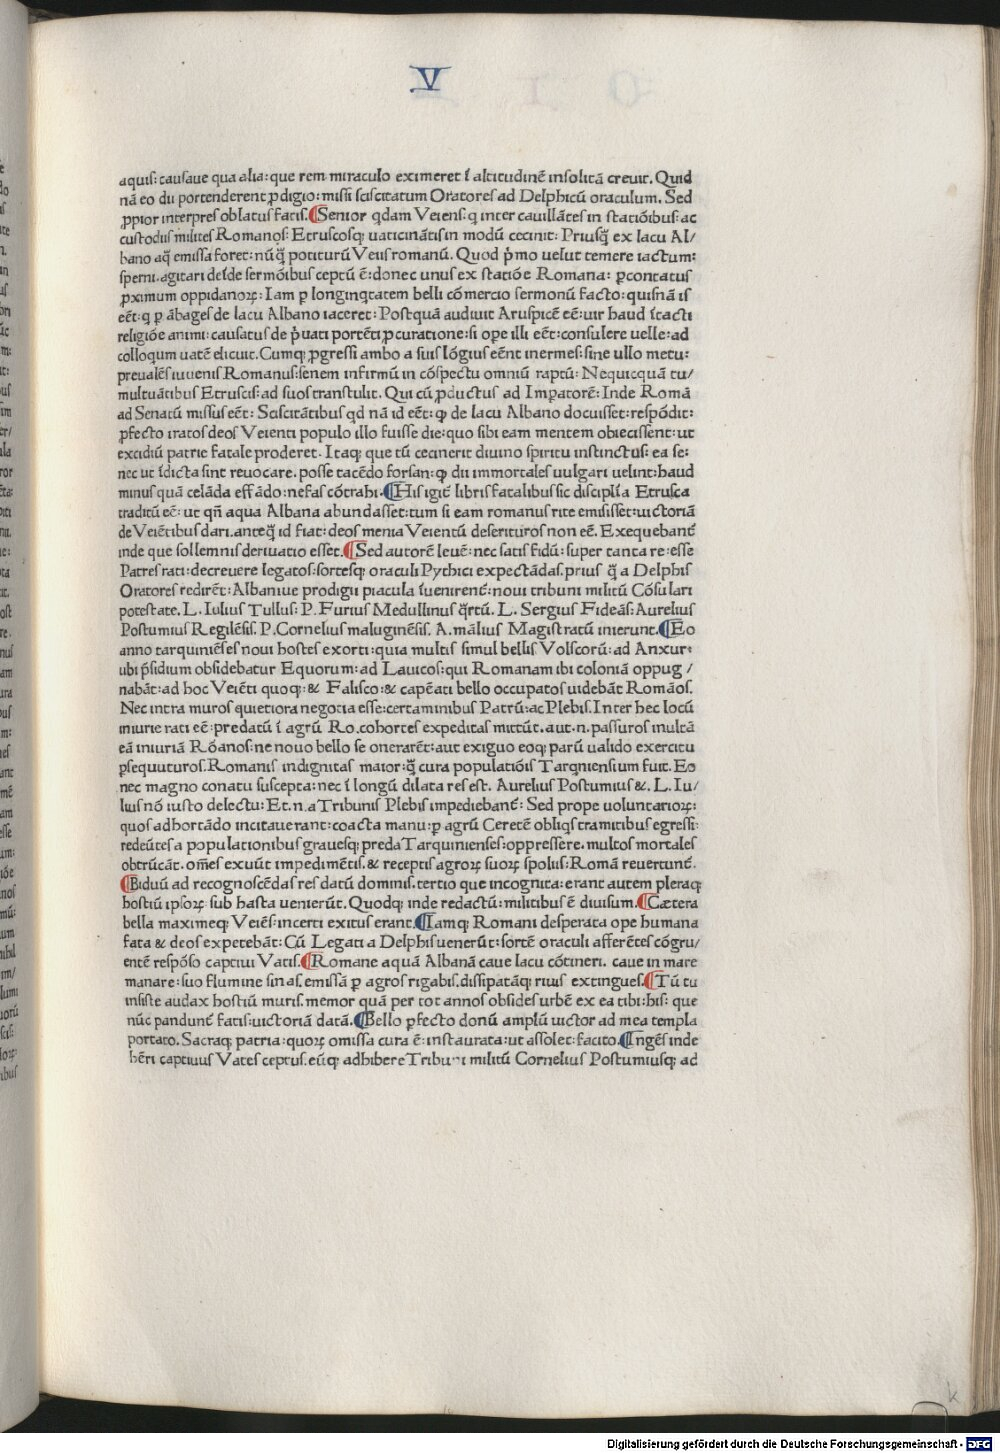 V
aquis: causaue qua alia: que rem miraculo eximeret ī altitudinē insolitā creuit. Quid
nā eo dii portenderent ꝓdigio: missi sciscitatum Oratores ad Delphicū oraculum. Sed
ꝓpior interpres oblatus fatis. ¶Senior qdam Veiens: q inter cauillātes in statiōibus: ac
custodiis milites Romanos: Etruscosq; uaticinātis in modū cecinit: Priusq̄ ex lacu Al/
bano aq̄ emissa foret: nūq̄ potiturū Veiis romanū. Quod pͥmo uelut temere iactum:
sperni. agitari deīde sermōibus ceptū ē: donec unus ex statiōe Romana: ꝑcontatus
ꝓximum oppidanoꝝ: Iam ꝑ longinqtatem belli cōmercio sermonū facto: quisnā is
eēt: q ꝑ ābages de lacu Albano iaceret: Postquā audiuit Aruspicē eē: uir haud ītacti
religiōe animi: causatus de pͥuati portēti ꝓcuratione: si ope illi eēt: consulere uelle: ad
colloqum uatē elicuit. Cumq; ꝓgressi ambo a suis lōgius eēnt inermes: sine ullo metu:
preualēs iuuenis Romanus: senem infirmū in cōspectu omniū raptū: Nequicquā tu/
multuātibus Etruscis: ad suos transtulit. Qui cū ꝓductus ad Imꝑatorē: Inde Romā
ad Senatū missus eēt: Sciscitātibus qd nā id eēt: ꝙ de lacu Albano docuisset: respōdit:
ꝓfecto iratos deos Veienti populo illo fuisse die: quo sibi eam mentem obiecissent: ut
excidiū patrie fatale proderet. Itaq; que tū cecinerit diuino spiritu instinctus: ea se:
nec ut īdicta sint reuocare. posse tacēdo forsan: ꝙ dii immortales uulgari uelint: haud
minus quā celāda effādo: nefas cōtrahi. ¶His igit̄ libris fatalibus sic disciplīa Etrusca
traditū eē: ut qn̄ aqua Albana abundasset: tum si eam romanus rite emisisset: uictoriā
de Veiētibus dari. anteq̄ id fiat: deos menia Veientū deserituros non eē. Exequebant̄
inde que sollemnis deriuatio esset. ¶Sed autorē leuē: nec satis fidū: super tanta re: esse
Patres rati: decreuere legatos: sortesq; oraculi Pythici expectādas. prius q̄ a Delphis
Oratores redirēt: Albaniue prodigii piacula īuenirent̄: noui tribuni militū Cōsulari
potestate. L. Iulius Tullus: P. Furius Medullinus qͣrtū. L. Sergius Fideās: Aurelius
Postumius Regilēsis. P. Cornelius maluginēsis. A. mālius Magistratū inierunt. ¶Eo
anno tarquiniēses noui hostes exorti: quia multis simul bellis Volscorū: ad Anxur:
ubi pͥsidium obsidebatur Equorum: ad Lauicos: qui Romanam ibi coloniā oppug/
nabāt: ad hoc Veiēti quoq: & Falisco: & capēati bello occupatos uidebāt Romāos.
Nec intra muros quietiora negotia esse: certaminibus Patrū: ac Plebis. Inter hec locū
iniurie rati eē: predatū ī agrū Ro. cohortes expeditas mittūt. aut. n. passuros inultā
eā iniuriā Rōanos: ne nouo bello se onerarēt: aut exiguo eoq; parū ualido exercitu
ꝑsequuturos. Romanis indignitas maior: q̄ cura populatiōis Tarqniensium fuit. Eo
nec magno conatu suscepta: nec ī longū dilata res est. Aurelius Postumius &. L. Iu/
lius nō iusto delectu: Et. n. a Tribunis Plebis impediebant̄: Sed prope uoluntarioꝝ:
quos adhortādo incitauerant: coacta manu: ꝑ agrū Ceretē obliqs tramitibus egressi:
redeūtes a populationibus grauesq; preda Tarquinienses: oppressere. multos mortales
obtrūcāt. om̄es exuūt impedimētis. & receptis agroꝝ suoꝝ spoliis: Romā reuertunt̄.
¶Biduū ad recognoscēdas res datū dominis. tertio que incognita: erant autem pleraq;
hostiū ipsoꝝ: sub hasta uenierūt. Quodq; inde redactū: militibus ē diuisum. ¶Cætera
bella maximeq; Veiēs: incerti exitus erant. ¶Iamq; Romani desperata ope humana
fata & deos expetebāt: Cū Legati a Delphis uenerūt: sortē oraculi afferētes cōgru/
entē respōso captiui Vatis. ¶Romane aquā Albanā caue lacu cōtineri. caue in mare
manare: suo flumine sinas. emissā ꝑ agros rigabis. dissipatāq; riuis extingues. ¶Tū tu
insiste audax hostiū muris. memor quā per tot annos obsides urbē ex ea tibi: his: que
nūc pandunt̄ fatis: uictoriā datā. ¶Bello ꝑfecto donū amplū uictor ad mea templa
portato. Sacraq; patria: quoꝝ omissa cura ē: instaurata: ut assolet: facito. ¶Ingēs inde
hēri captiuus Vates ceptus. eūq; adhibere Tribuni militū Cornelius Postumiusq; ad
k
Digitalisierung gefördert durch die Deutsche Forschungsgemeinschaft - DFG